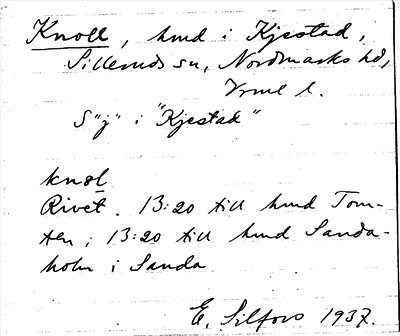 Knoll, hmd i Kjestad,
Silleruds sn, Nordmarks hd,
Vrml l.
S"j" i "Kjestad"
knol
Rivet. 13:20 till hmd Tom-
ten; 13:20 till hmd Sanda-
holm i Sanda
E. Silfors 1937.